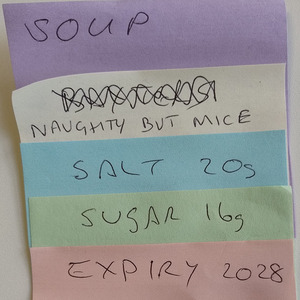 SOUP
NAUGHTY BUT MICE
SALT 20g
SUGAR 16g
EXPIRY 2028